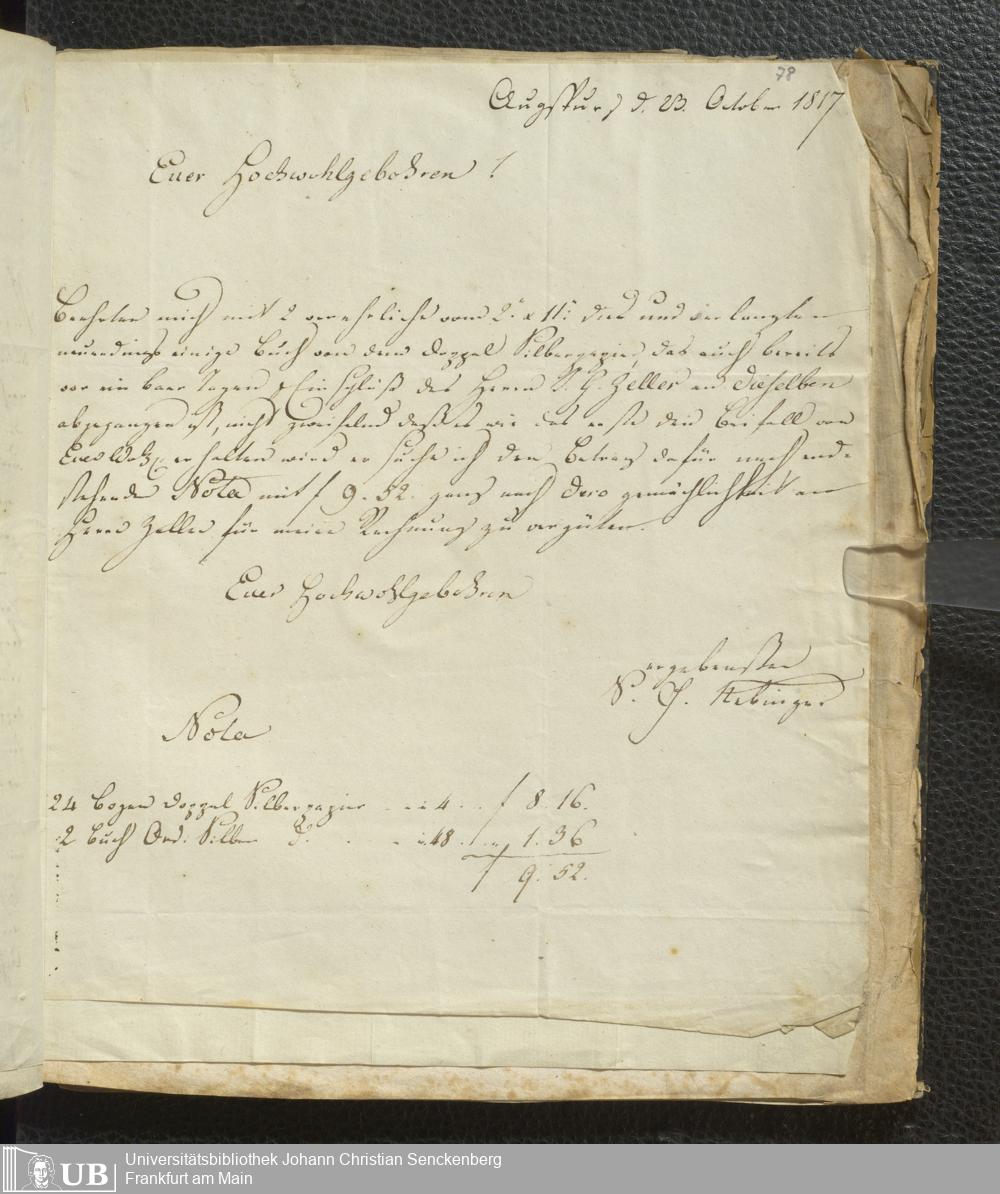 78
Augspurg d. 23. October 1817
Euer Hochwohlgebohren !
Beehrten mich mit 2 verehrliche vom 2. & 11: dies und verlangten
neuerdings einige Buch von dem Doppel Silberpapier, das auch bereits
vor ein baar Tagen Einschluß des Herrn Zeller an dieselben
abgegangen ist, nicht zweiflend daß es wie das erste den Beifall von
erhalten wird ersuche ich den Betrag dafür nach end-
stehender Nota mit f 9. 52. ganz nach dero gemächlichkeit an
Herrn Zeller für meine Rechnung zu vergüten.
Euer Hochwohlgebohren
ergebenster
Nota
24 Bogen Doppel Silberpapier - - a 4 . . . f 8. 16.
2 Buch Ord: Silber d. . . - a 48 . . . " 1. 36
f 9. 52.
UB
Universitätsbibliothek Johann Christian Senckenberg
Frankfurt am Main